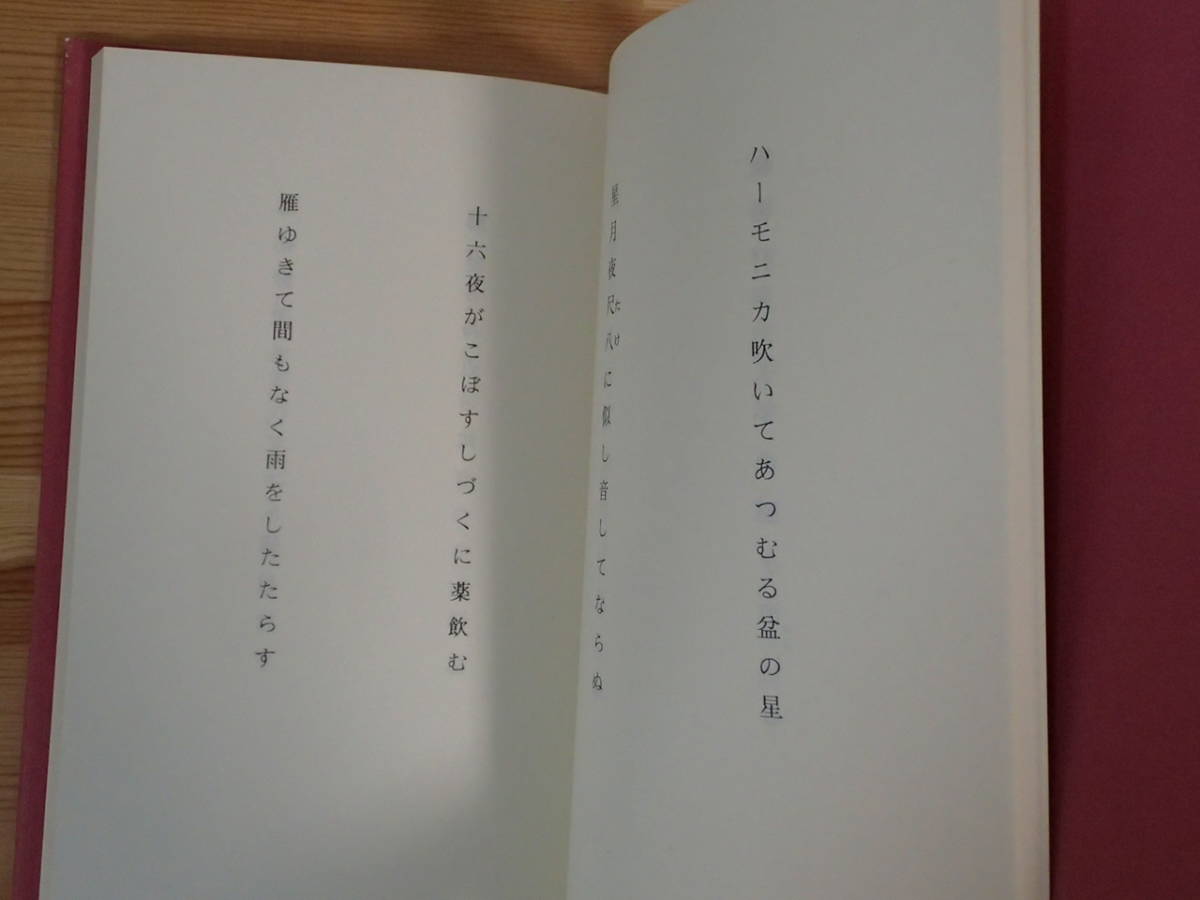 ハーモニカ吹いてあつむる盆の星
星月夜尺八に似し音してならぬ
たけ
十六夜がこぼすしづくに薬飲む
雁ゆきて間もなく雨をしたたらす